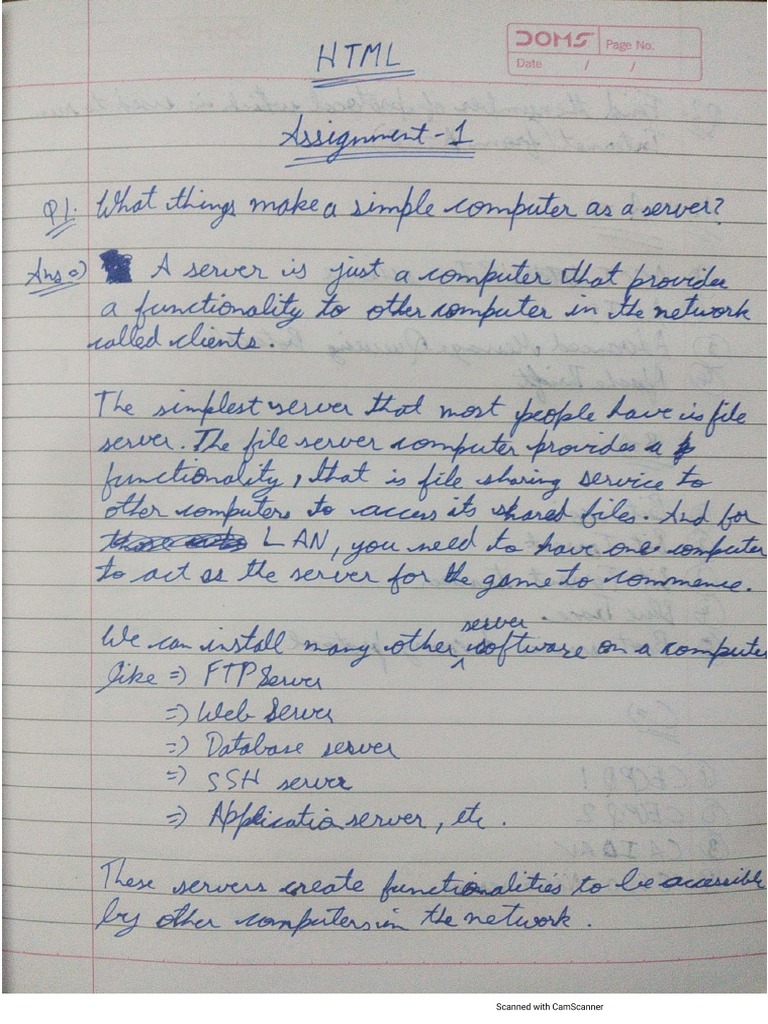 DOMS Page No.
Date / /
HTML
Assignment-1
Q1. What things make a simple computer as a server?
Ans=) A server is just a computer that provides
a functionality to other computer in the network
called clients.
The simplest server that most people have is file
server. The file server computer provides a
functionality, that is file sharing service to
other computers to access its shared files. And for
LAN, you need to have one computer
to act as the server for the game to commence.
We can install many other server software on a computer
like => FTP Server
=> Web Server
=> Database server
=> SSH server
=> Applicatio server, etc.
These servers create functionalities to be accessible
by other computers in the network.
Scanned with CamScanner